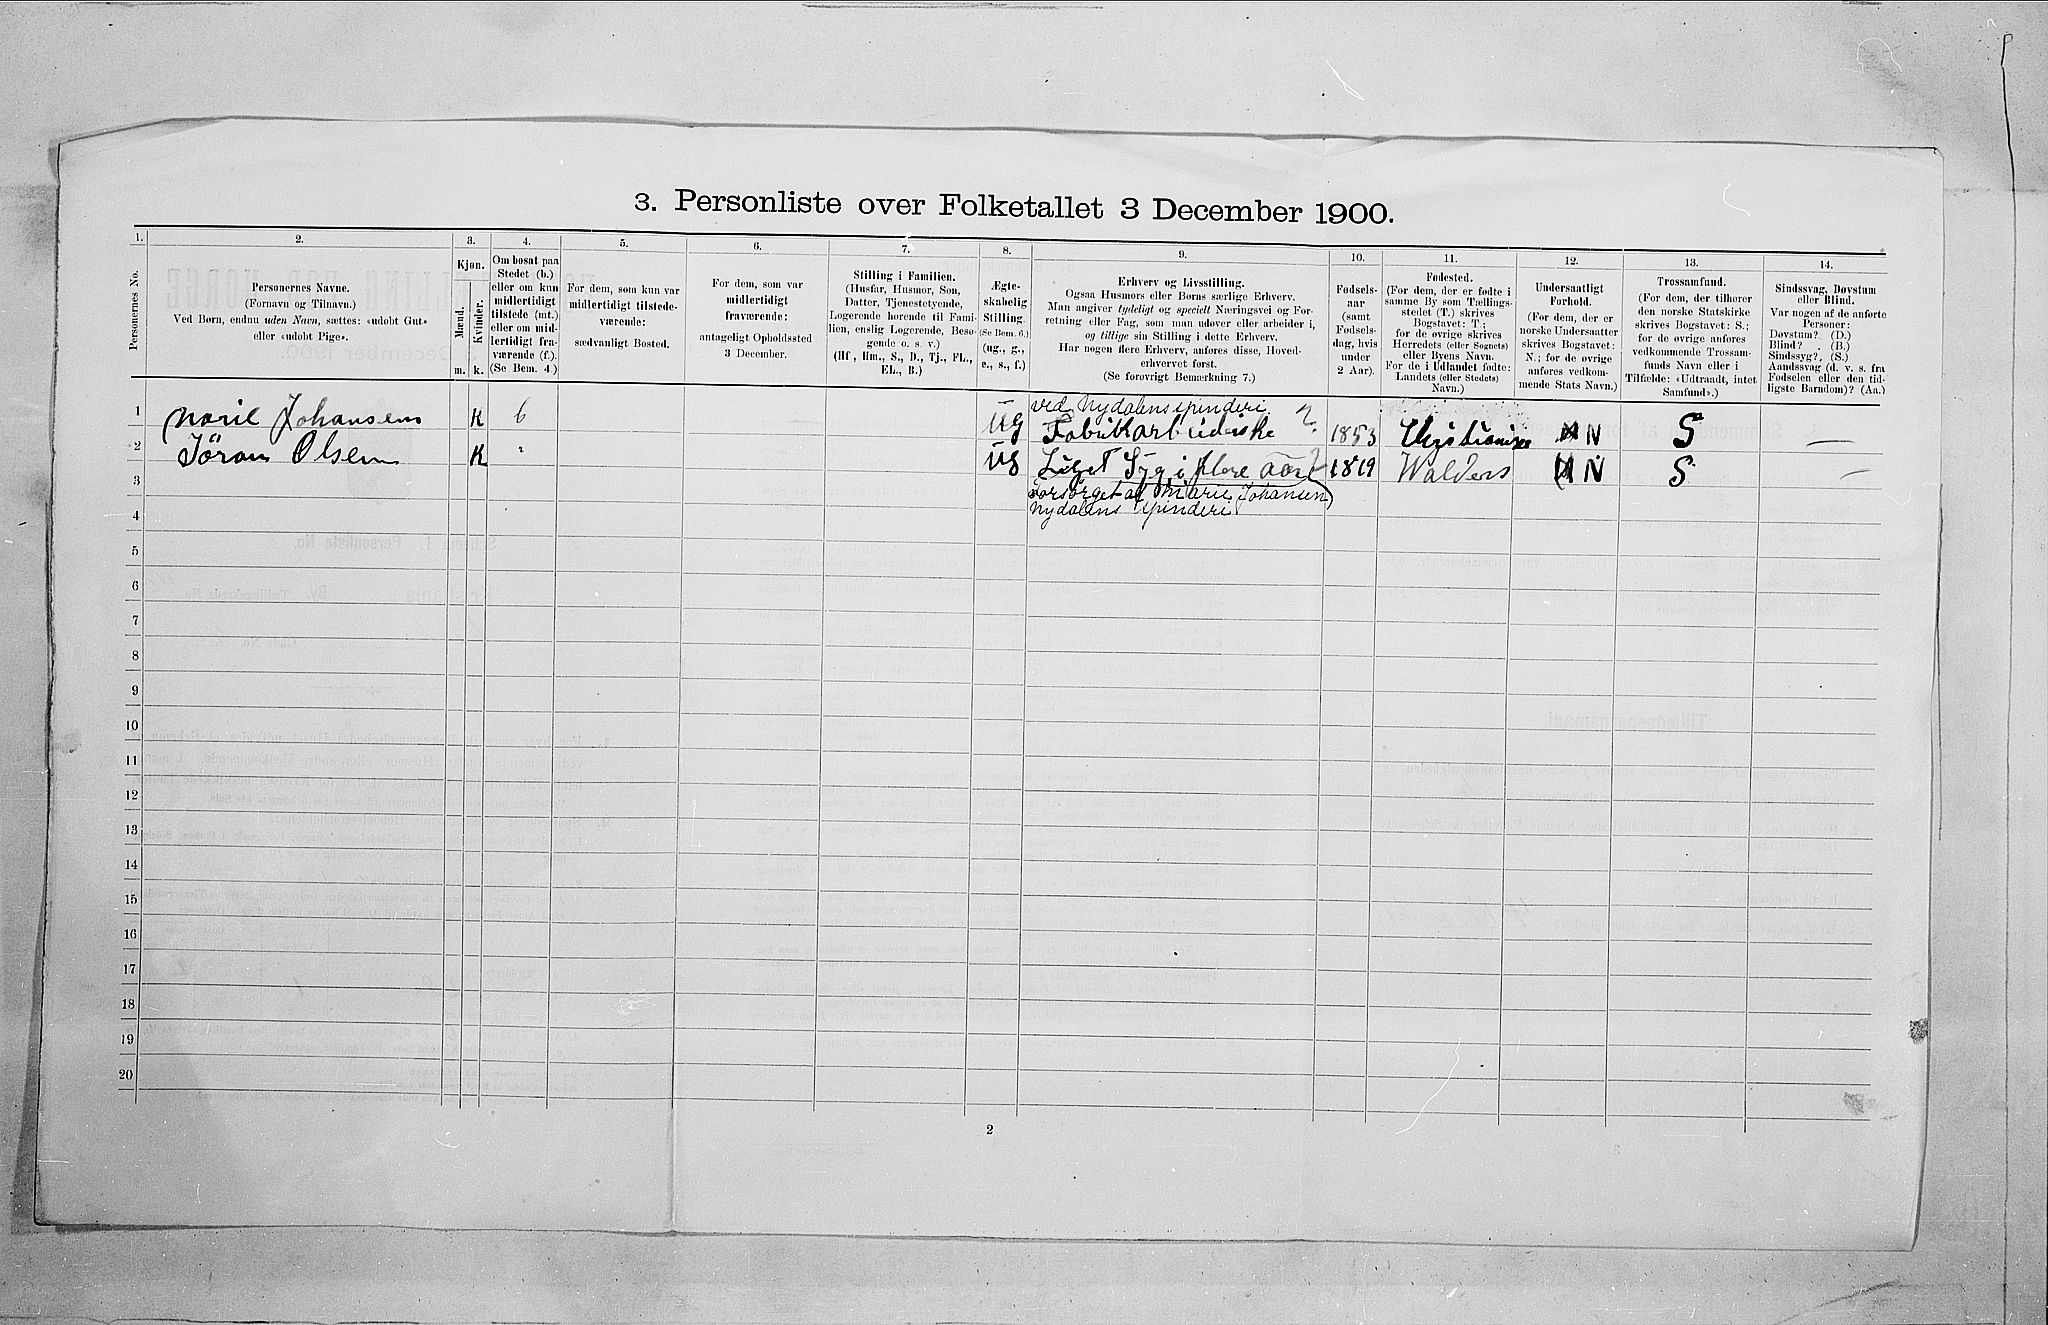 3. Personliste over Folketallet 3 December 1900.
1. 2. 3. 4. 5. 6. 7. 8. 9. 10. 11. 12. 13. 14.
Personernes No.
Personernes Navne.
(Fornavn og Tilnavn.)
Ved Børn, endnu uden Navn, sættes: «udøbt Gut»
eller «udøbt Pige».
Kjøn.
Mænd.
Kvinder.
m. k.
Om bosat paa
Stedet (b.)
eller om kun
midlertidigt
tilstede (mt.)
eller om mid-
lertidigt fra-
værende (f.).
(Se Bem. 4.)
For dem, som kun var
midlertidigt tilstede-
værende:
sædvanligt Bosted.
For dem, som var
midlertidigt
fraværende:
antageligt Opholdssted
3 December.
Stilling i Familien.
(Husfar, Husmor, Søn,
Datter, Tjenestetyende,
Logerende hørende til Fami-
lien, enslig Logerende, Besø-
gende o. s. v.)
(Hf, Hm., S., D., Tj., FL.,
EL., B.)
Ægte-
skabelig
Stilling.
(Se Bem. 6.)
(ug., g.,
e., s., f.)
Erhverv og Livsstilling.
Ogsaa Husmors eller Børns særlige Erhverv.
Man angiver tydeligt og specielt Næringsvei og For-
retning eller Fag, som man udøver eller arbeider i,
og tillige sin Stilling i dette Erhverv.
Har nogen flere Erhverv, anføres disse, Hoved-
erhvervet først.
(Se forøvrigt Bemærkning 7.)
Fødsels-
aar
(samt
Fødsels-
dag, hvis
under
2 Aar).
Fødested.
(For dem, der er fødte i
samme By som Tællings-
stedet (T.) skrives
Bogstavet: T.;
for de øvrige skrives
Herredets (eller Sognets)
eller Byens Navn.
For de i Udlandet fødte:
Landets (eller Stedets)
Navn.)
Undersaatligt
Forhold.
(For dem, der er
norske Undersaatter
skrives Bogstavet:
N.; for de øvrige
anføres vedkom-
mende Stats Navn.)
Trossamfund.
(For dem, der tilhører
den norske Statskirke
skrives Bogstavet: S.;
for de øvrige anføres
vedkommende Trossam-
funds Navn eller i
Tilfælde: «Udtraadt, intet
Samfund».)
Sindssvag, Døvstum
eller Blind.
Var nogen af de anførte
Personer:
Døvstum? (D.)
Blind? (B.)
Sindssyg? (S.)
Aandssvag (d. v. s. fra
Fødselen eller den tid-
ligste Barndom)? (Aa.)
ved Nydalens spinderi
1 Marie Johansen K b ug Fabrikarbeiderske 2. 1853 Christiania N S —
2 Jöran Olsen K " ug Liget Syg i flere aar 1819 Walders N S —
3 Forsörget af Marie Johansen
Nydalens spinderi
4
5
6
7
8
9
10
11
12
13
14
15
16
17
18
19
20
2